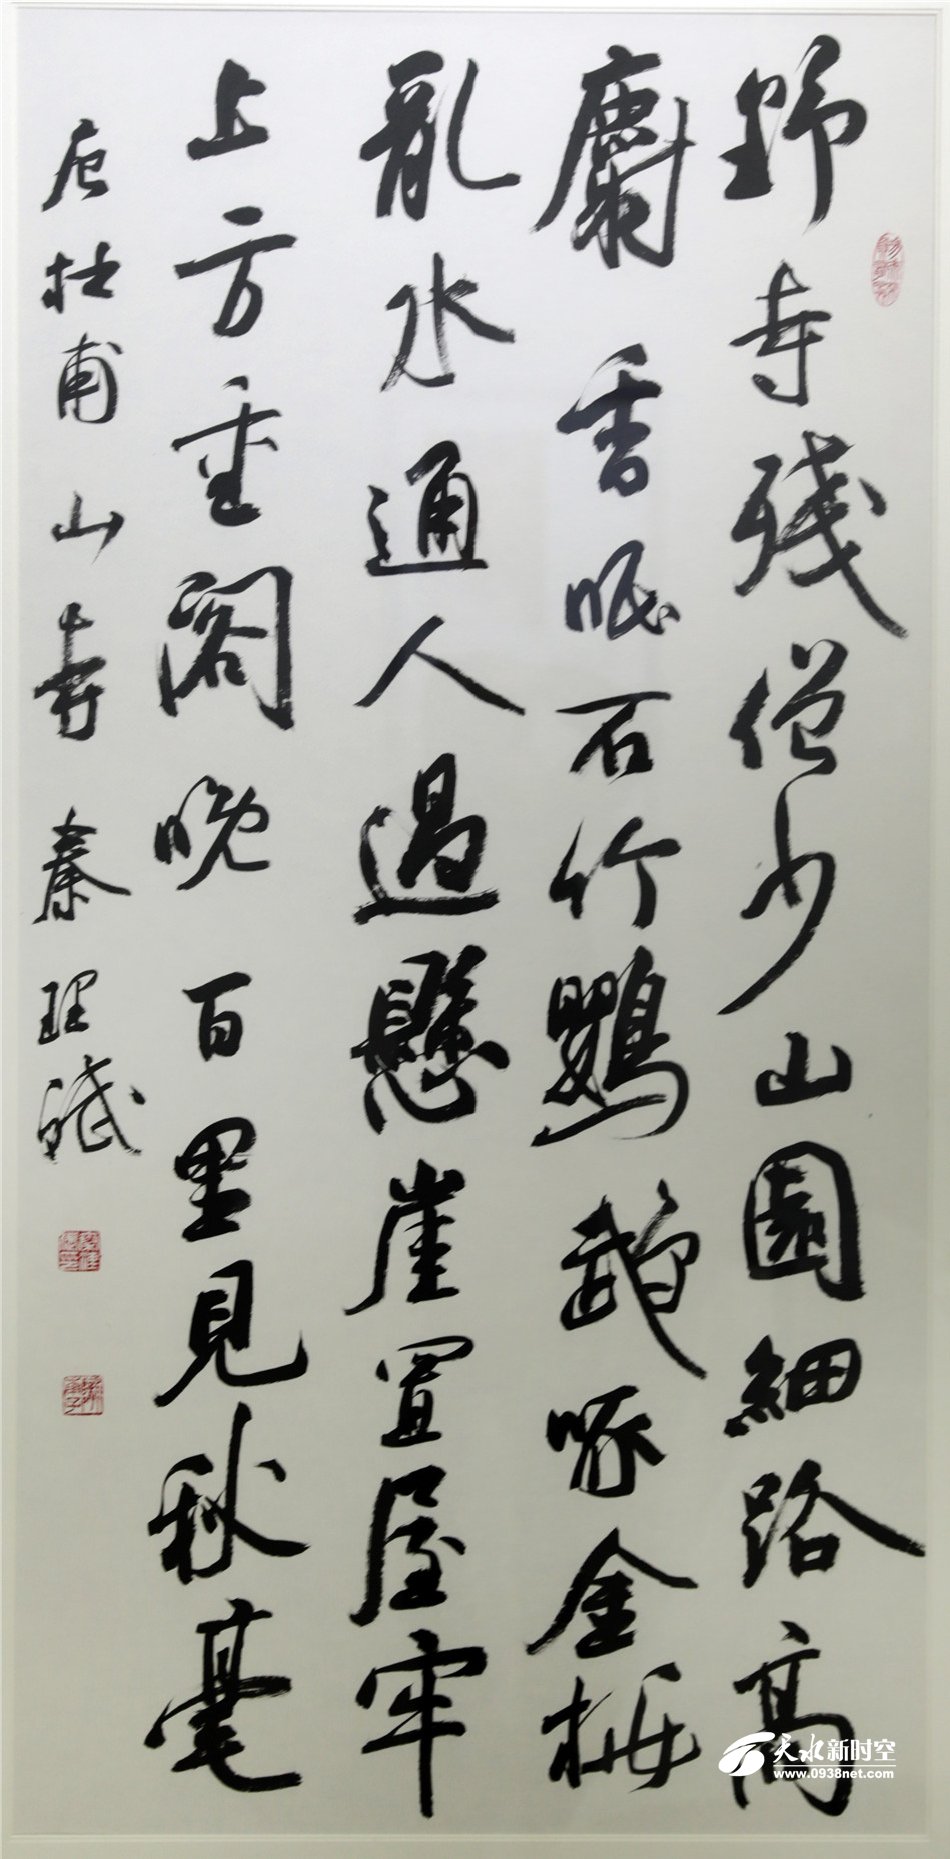 野寺殘僧少山園細路高
麝香眠石竹鸚鵡啄金桃
亂水通人過懸崖置屋牢
上方重閣晚百里見秋毫
唐杜甫山寺秦理斌
天水新时空
www.0938net.com